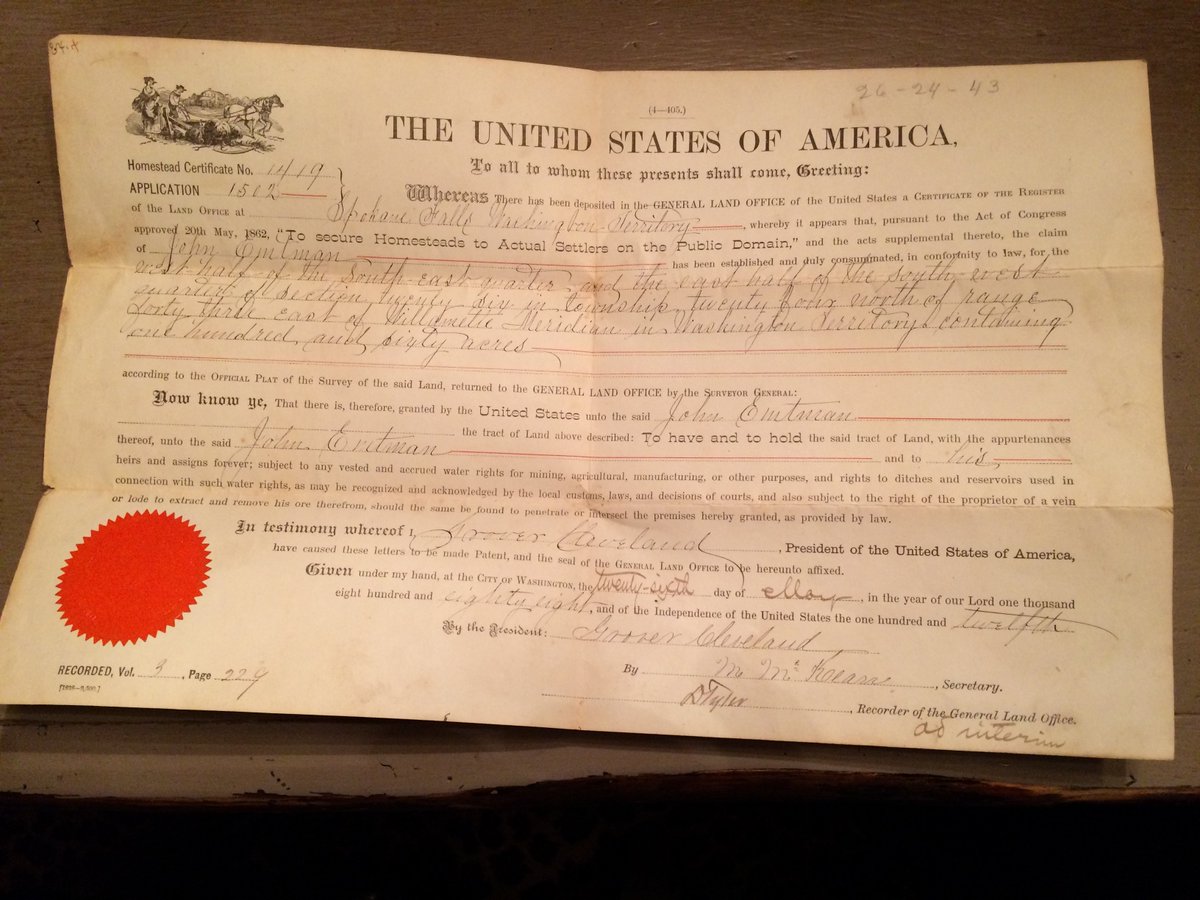 26-24-43
(4—405.)
THE UNITED STATES OF AMERICA,
To all to whom these presents shall come, Greeting:
Homestead Certificate No. 1419
APPLICATION 1502
Whereas There has been deposited in the GENERAL LAND OFFICE of the United States a CERTIFICATE OF THE REGISTER
OF THE LAND OFFICE at Spokane Falls Washington Territory, whereby it appears that, pursuant to the Act of Congress
approved 20th May, 1862, "To secure Homesteads to Actual Settlers on the Public Domain," and the acts supplemental thereto, the claim
of John Emtman has been established and duly consummated, in conformity to law, for the
west half of the South-east quarter and the east half of the south west
quarter of section twenty six in township twenty four north of range
forty three east of Willamette Meridian in Washington Territory, containing
one hundred and sixty acres
according to the OFFICIAL PLAT of the Survey of the said Land, returned to the GENERAL LAND OFFICE by the SURVEYOR GENERAL:
Now know ye, That there is, therefore, granted by the United States unto the said John Emtman
the tract of Land above described: To have and to hold the said tract of Land, with the appurtenances
thereof, unto the said John Emtman and to his
heirs and assigns forever; subject to any vested and accrued water rights for mining, agricultural, manufacturing, or other purposes, and rights to ditches and reservoirs used in
connection with such water rights, as may be recognized and acknowledged by the local customs, laws, and decisions of courts, and also subject to the right of the proprietor of a vein
or lode to extract and remove his ore therefrom, should the same be found to penetrate or intersect the premises hereby granted, as provided by law.
In testimony whereof I, Grover Cleveland, President of the United States of America,
have caused these letters to be made Patent, and the seal of the GENERAL LAND OFFICE to be hereunto affixed.
Given under my hand, at the CITY OF WASHINGTON, the twenty-sixth day of May, in the year of our Lord one thousand
eight hundred and eighty eight, and of the Independence of the United States the one hundred and twelfth
By the President: Grover Cleveland
By M. McKean, Secretary.
RECORDED, Vol. 3, Page 229
D Tyler, Recorder of the General Land Office.
ad interim